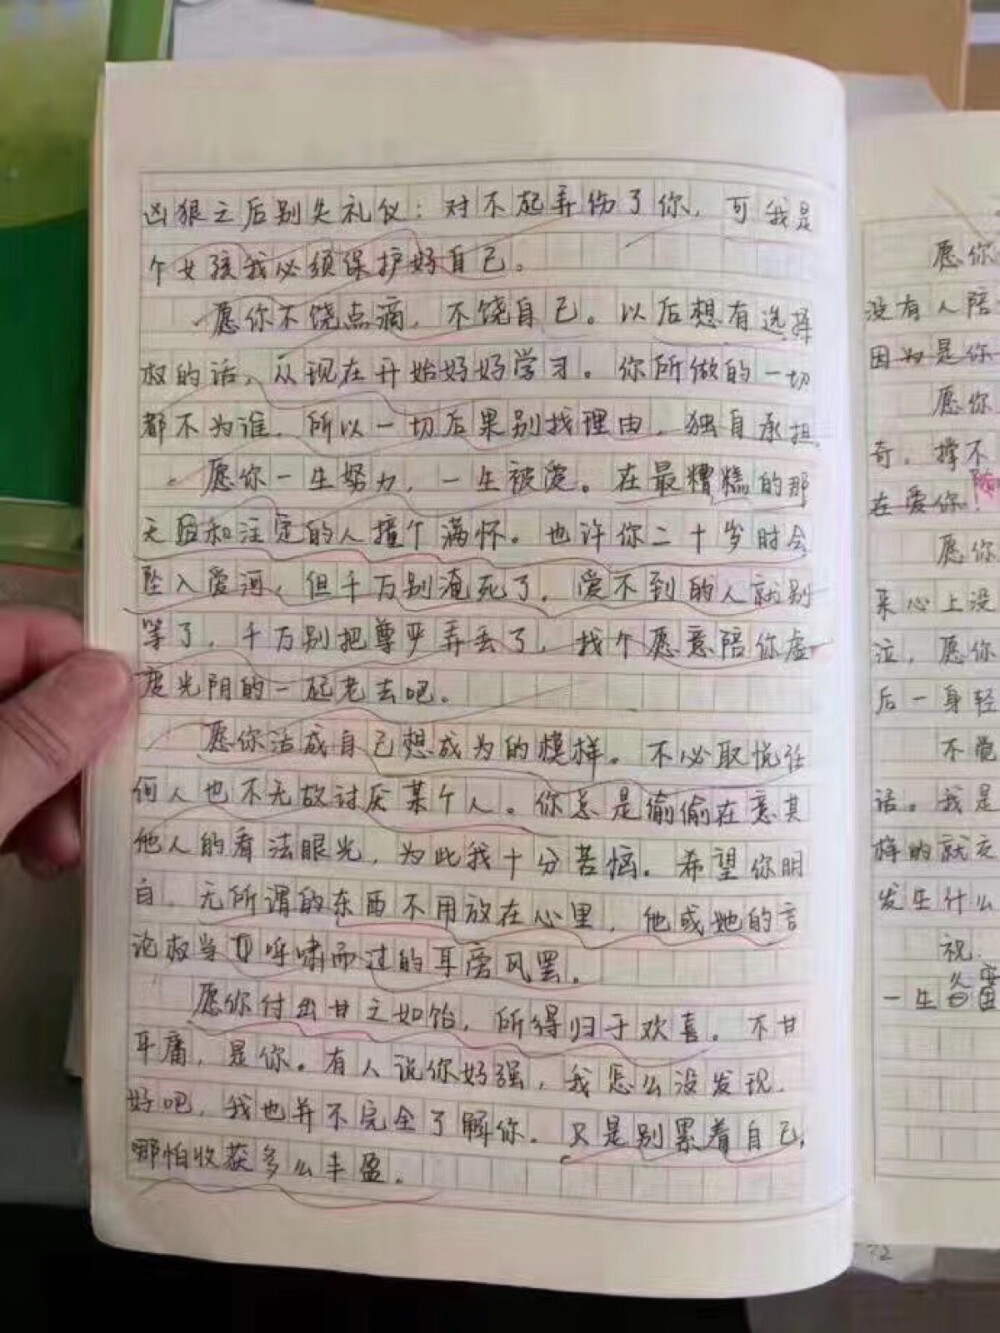 凶狠之后别失礼仪：对不起弄伤了你，可我是
个女孩我必须保护好自己。
愿你不饶点滴，不饶自己。以后想有选择
权的话，从现在开始好好学习。你所做的一切
都不为谁，所以一切后果别找理由，独自承担。
愿你一生努力，一生被爱。在最糟糕的那
天和注定的人撞个满怀。也许你二十岁时会
坠入爱河，但千万别淹死了，爱不到的人就别
等了，千万别把尊严弄丢了，找个愿意陪你虚
度光阴的一起老去吧。
愿你活成自己想成为的模样。不必取悦任
何人也不无故讨厌某个人。你总是偷偷在意其
他人的看法眼光，为此我十分苦恼。希望你明
白，无所谓的东西不用放在心里，他或她的言
论权当呼啸而过的耳旁风罢。
愿你付出甘之如饴，所得归于欢喜。不甘
平庸，是你。有人说你好强，我怎么没发现。
好吧，我也并不完全了解你。只是别累着自己，
哪怕收获多么丰盈。
愿你
没有人陪
因为是你
愿你
奇，撑不
在爱你
愿你
来心上没
泣，愿你
后一身轻
不觉
话。我是
样的就交
发生什么
祝
一生
72